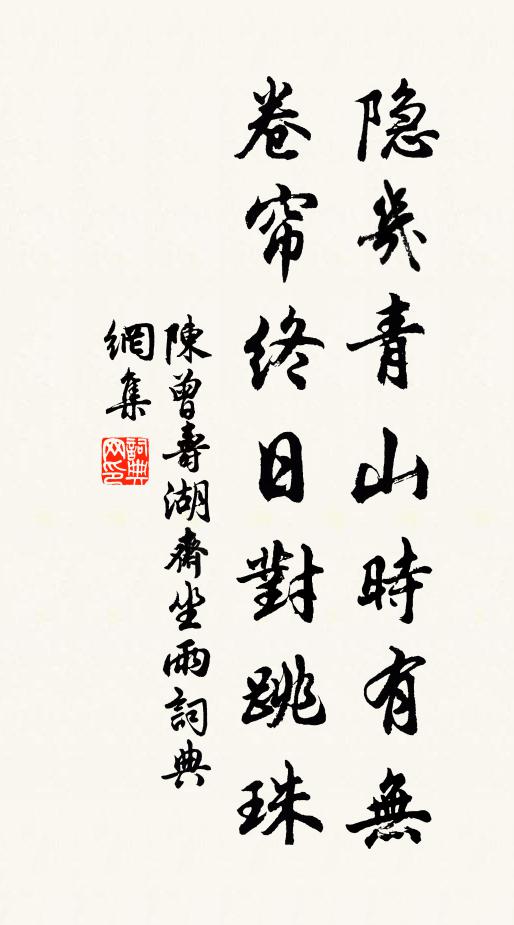 隐几青山時有無
卷帘终日對跳珠
陳曾壽湖齋坐雨詞典
網集
詞典
网印